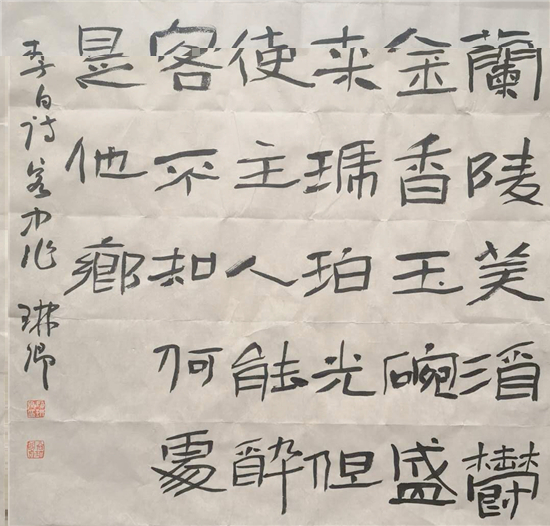 蘭陵美酒鬱
金香玉碗盛
来琥珀光但
使主人能醉
客不知何處
是他鄉
李白詩客中作 琳卿